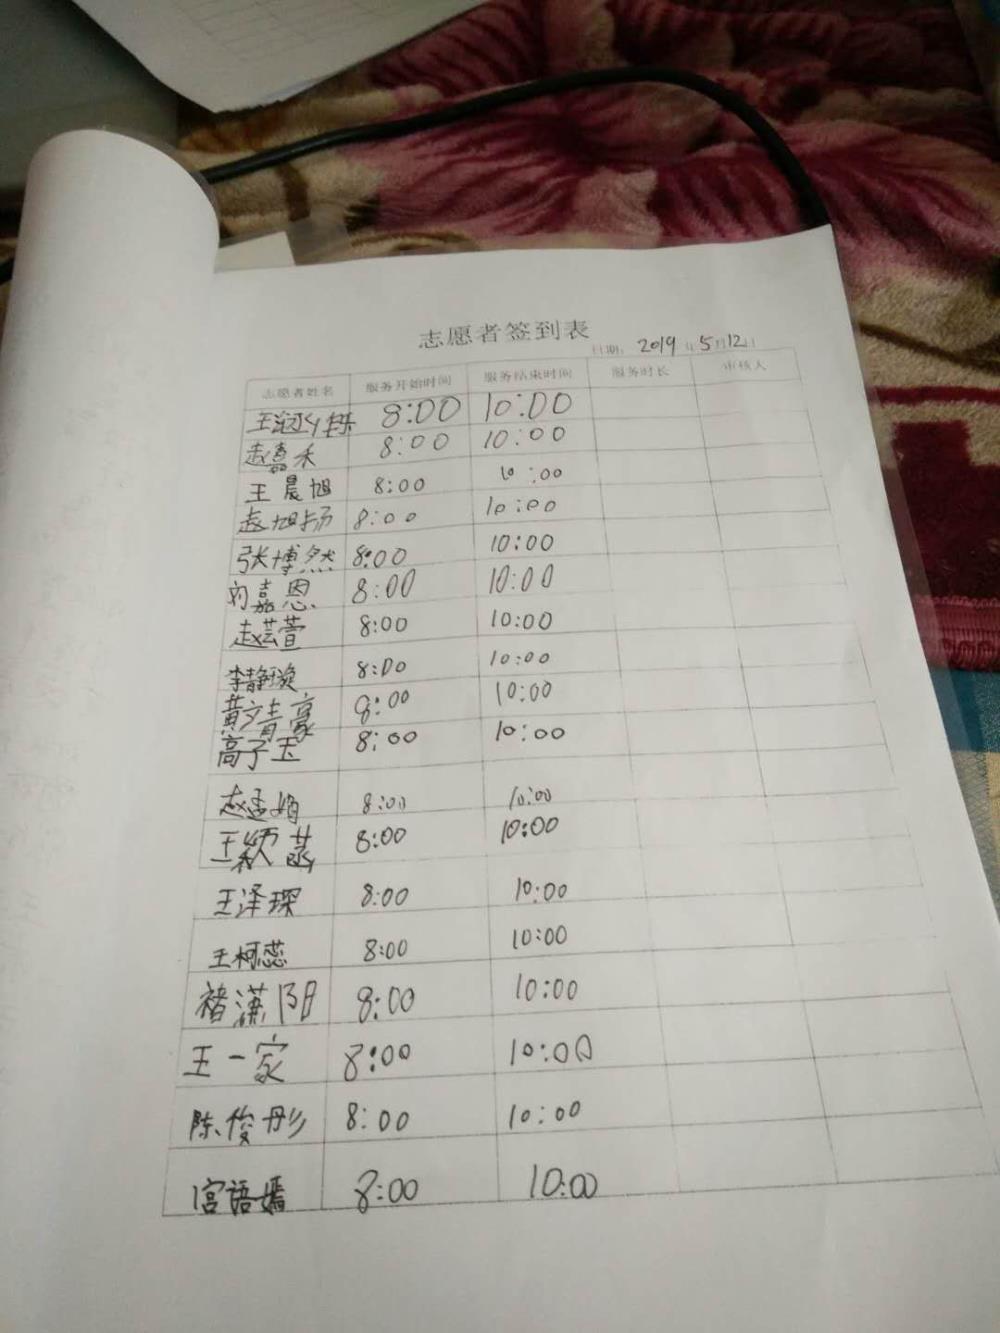 志愿者签到表
日期: 2019年5月12日
志愿者姓名 服务开始时间 服务结束时间 服务时长 审核人
8:00 10:00
赵嘉禾 8:00 10:00
王晨旭 8:00 10:00
袁旭扬 8:00 10:00
张博然 8:00 10:00
刘嘉恩 8:00 10:00
赵芸萱 8:00 10:00
李静璇 8:00 10:00
8:00 10:00
高子玉 8:00 10:00
赵孟娟 8:00 10:00
王颖菡 8:00 10:00
王泽琛 8:00 10:00
王柯蕊 8:00 10:00
褚潇阳 8:00 10:00
王一家 8:00 10:00
陈俊彤 8:00 10:00
宫语嫣 8:00 10:00